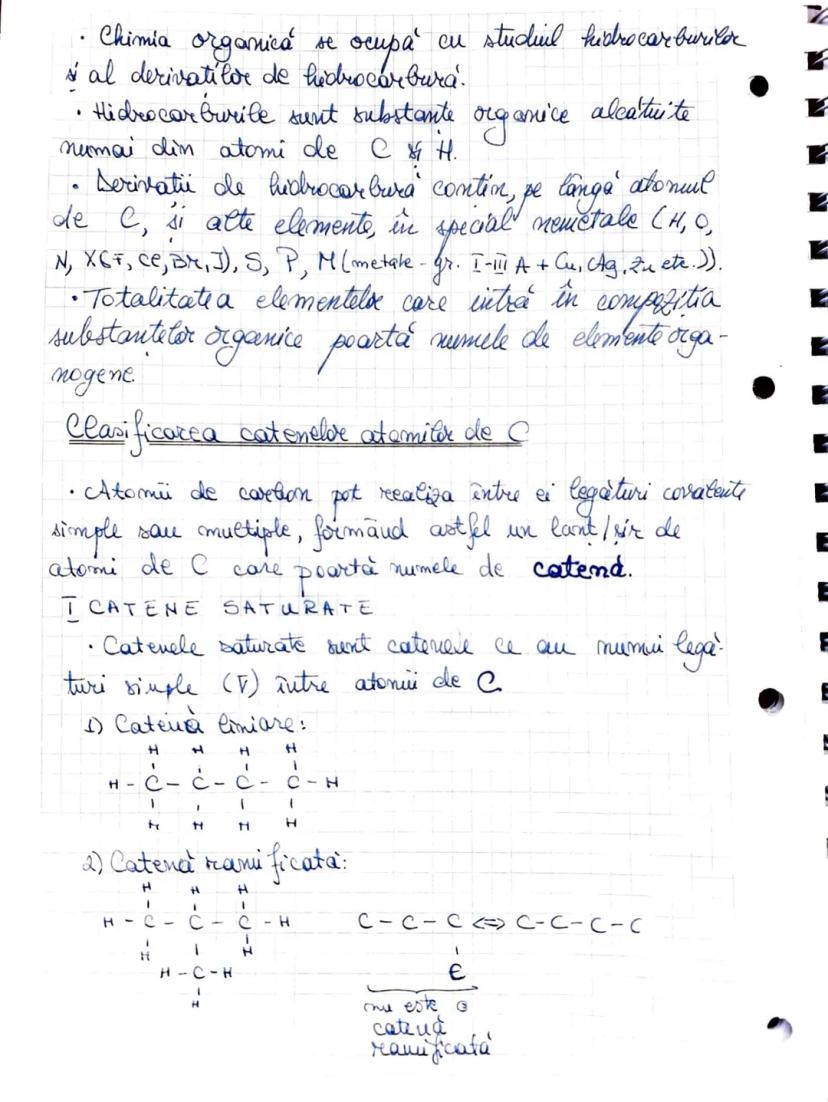 · Chimia organică se ocupă cu studiul hidrocarburilor
și al derivaților de hidrocarbură.
· Hidrocarburile sunt substanțe organice alcătuite
numai din atomi de C și H.
· Derivații de hidrocarbură conțin, pe lângă atomul
de C, și alte elemente, în special nemetale (H, O,
N, X(F, Cl, Br, I), S, P, M (metale - gr. I-III A + Cu, Ag, Zn etc.)).
· Totalitatea elementelor care intră în compoziția
substanțelor organice poartă numele de elemente orga-
nogene.
Clasificarea catenelor atomilor de C
· Atomii de carbon pot realiza între ei legături covalente
simple sau multiple, formând astfel un lanț/șir de
atomi de C care poartă numele de catenă.
I CATENE SATURATE
· Catenele saturate sunt catenele ce au numai legă-
turi simple (Γ) între atomii de C.
1) Catenă liniare:
H H H H
H - C - C - C - C - H
H H H H
2) Catenă ramificată:
H H H
H - C - C - C - H C - C - C <=> C - C - C - C
H H
H - C - H C
H
nu este o
catenă
ramificată